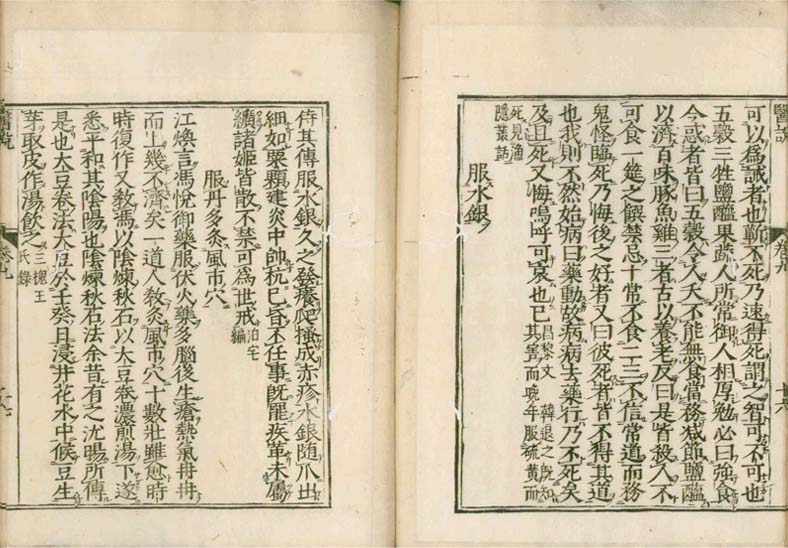 醫說
卷九
可以爲誡者也蘄不死乃速得死謂之智可不可也
五穀三牲鹽醯果蔬人所常御人相厚勉必曰強食
今惑者皆曰五穀令人夭不能無食當務减節鹽醯
以濟百味豚魚雞三者古以養老反曰是皆殺人不
可食一筵之饌禁忌十常不食二三不信常道而務
鬼怪臨死乃悔後之好者又曰彼死者皆不得其道
也我則不然始病曰藥動故病病去藥行乃不死矣
及且死又悔嗚呼可哀也已昌黎文 韓退之既知其害而晚年服硫黄而
死見漁隱叢話
服水銀
侍其傳服水銀久之發癢爬搔成赤疹水銀隨爪出
細如粟顆建炎中帥杭已昏不任事既罷疾革未屬
纊諸姬皆散不禁可爲世戒泊宅編
服丹多灸風市穴
江煥言馮悅御藥服伏火藥多腦後生瘡熱氣冉冉
而上幾不濟矣一道人敎灸風市穴十數壯雖愈時
時復作又敎馮以陰煉秋石以大豆卷濃煎湯下遂
悉平和其陰陽也陰煉秋石法余昔有之沈晹所傳
是也大豆卷法大豆於壬癸日浸井花水中候豆生
芽取皮作湯飲之三槐王氏錄
醫說
卷九